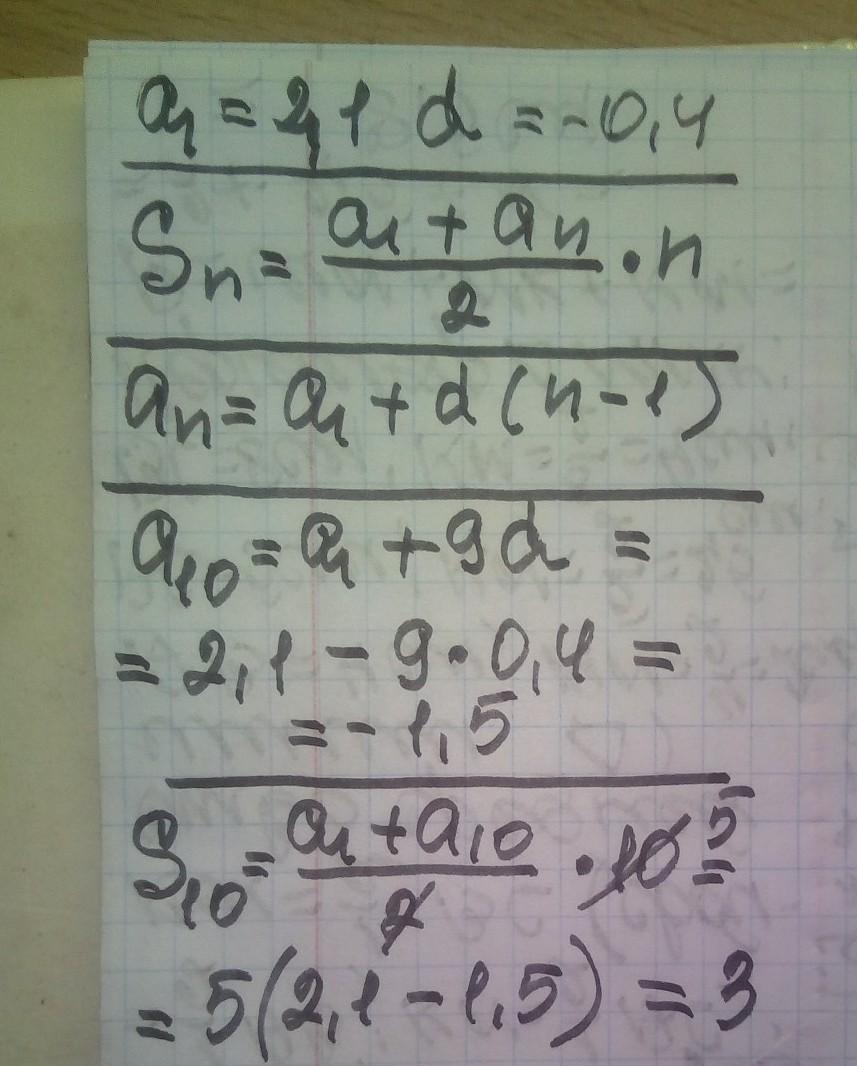 a₁ = 2,1 d = -0,4
Sₙ = (a₁ + aₙ)/2 · n
aₙ = a₁ + d(n-1)
a₁₀ = a₁ + 9d =
= 2,1 - 9 · 0,4 =
= -1,5
S₁₀ = (a₁ + a₁₀)/2 · 10 5 =
= 5(2,1 - 1,5) = 3